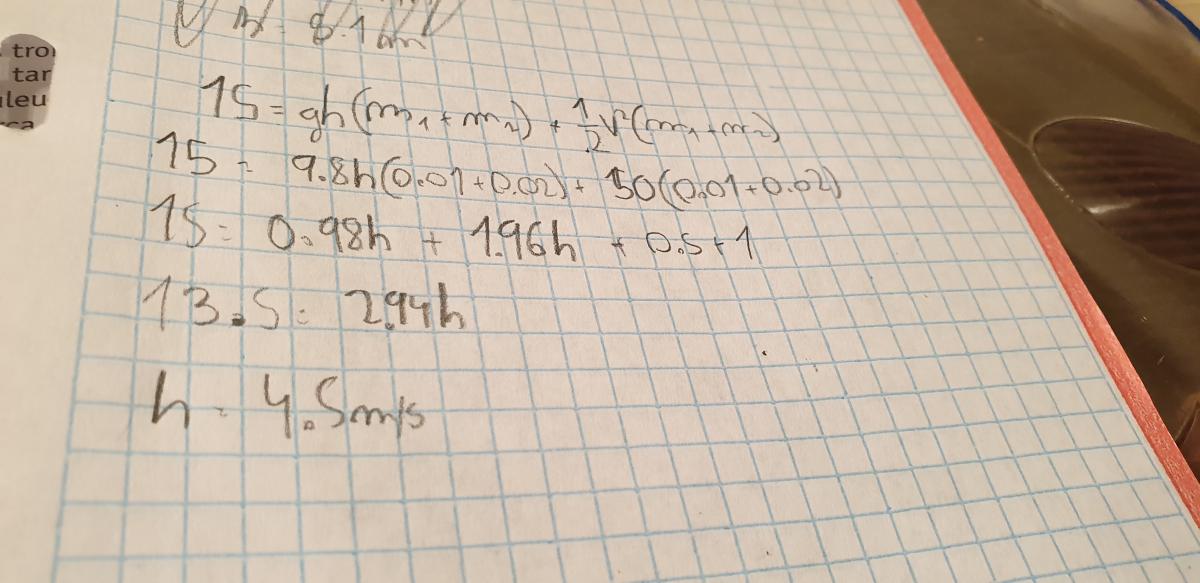 troi
tar
uleu
rca
15 = gh(m₁ + m₂) + 1/2 v²(m₁ + m₂)
15 = 9.8h(0.01 + 0.02) + 50(0.01 + 0.02)
15 = 0.98h + 1.96h + 0.5 + 1
13.5 = 2.94h
h = 4.5 m/s